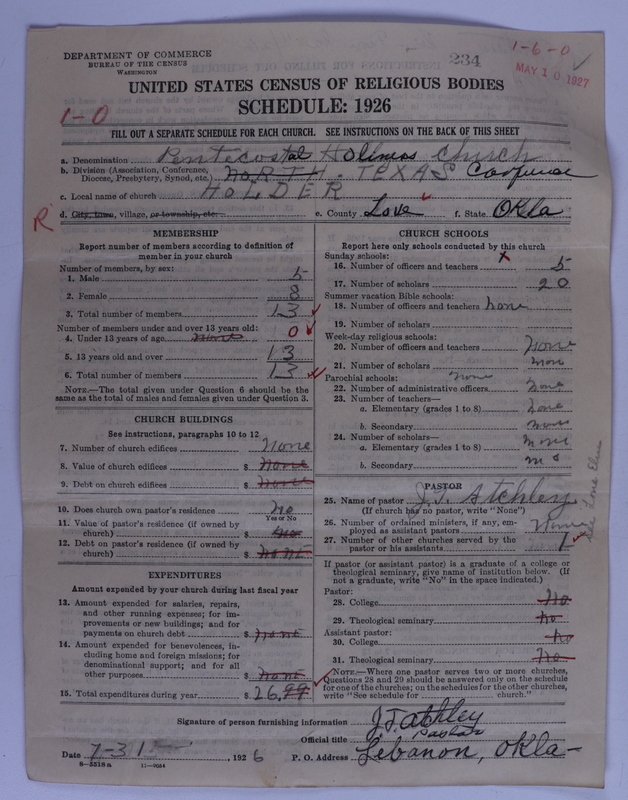 DEPARTMENT OF COMMERCE
BUREAU OF THE CENSUS
WASHINGTON
234
1-6-0
MAY 10 1927
UNITED STATES CENSUS OF RELIGIOUS BODIES
SCHEDULE: 1926
1-0
FILL OUT A SEPARATE SCHEDULE FOR EACH CHURCH. SEE INSTRUCTIONS ON THE BACK OF THIS SHEET
a. Denomination Pentecostal Holiness Church
b. Division (Association, Conference, Diocese, Presbytery, Synod, etc.) NORTH. TEXAS Confrence
c. Local name of church HOLDER
R
d. City, town, village, or township, etc. e. County Love f. State OKLA
MEMBERSHIP
Report number of members according to definition of
member in your church
Number of members, by sex:
1. Male 5
2. Female 8
3. Total number of members 13
Number of members under and over 13 years old:
4. Under 13 years of age none 0
5. 13 years old and over 13
6. Total number of members 13
NOTE.—The total given under Question 6 should be the
same as the total of males and females given under Question 3.
CHURCH BUILDINGS
See instructions, paragraphs 10 to 12
7. Number of church edifices None
8. Value of church edifices $ None
9. Debt on church edifices $ None
10. Does church own pastor's residence? no
Yes or No
11. Value of pastor's residence (if owned by
church) $ No
12. Debt on pastor's residence (if owned by
church) $ none
EXPENDITURES
Amount expended by your church during last fiscal year
13. Amount expended for salaries, repairs,
and other running expenses; for im-
provements or new buildings; and for
payments on church debt $ none
14. Amount expended for benevolences, in-
cluding home and foreign missions; for
denominational support; and for all
other purposes $ none
15. Total expenditures during year $ 26.99
CHURCH SCHOOLS
Report here only schools conducted by this church
Sunday schools:
16. Number of officers and teachers 5
17. Number of scholars 20
Summer vacation Bible schools:
18. Number of officers and teachers none
19. Number of scholars
Week-day religious schools:
20. Number of officers and teachers None
21. Number of scholars none
Parochial schools: none
22. Number of administrative officers none
23. Number of teachers—
a. Elementary (grades 1 to 8) none
b. Secondary none
24. Number of scholars—
a. Elementary (grades 1 to 8) none
b. Secondary
PASTOR
25. Name of pastor J.T. Atchley
(If church has no pastor, write "None")
26. Number of ordained ministers, if any, em-
ployed as assistant pastors None
27. Number of other churches served by the
pastor or his assistants 1
See Lone Elm
If pastor (or assistant pastor) is a graduate of a college or
theological seminary, give name of institution below. (If
not a graduate, write "No" in the space indicated.)
Pastor:
28. College No
29. Theological seminary No
Assistant pastor:
30. College No
31. Theological seminary No
NOTE.—Where one pastor serves two or more churches,
Questions 28 and 29 should be answered only on the schedule
for one of the churches; on the schedules for the other churches,
write "See schedule for church."
Signature of person furnishing information J.T. Atchley
Official title Pastor
Date 7-31, 1926 P. O. Address Lebanon, Okla-
8-5518a 11-9034